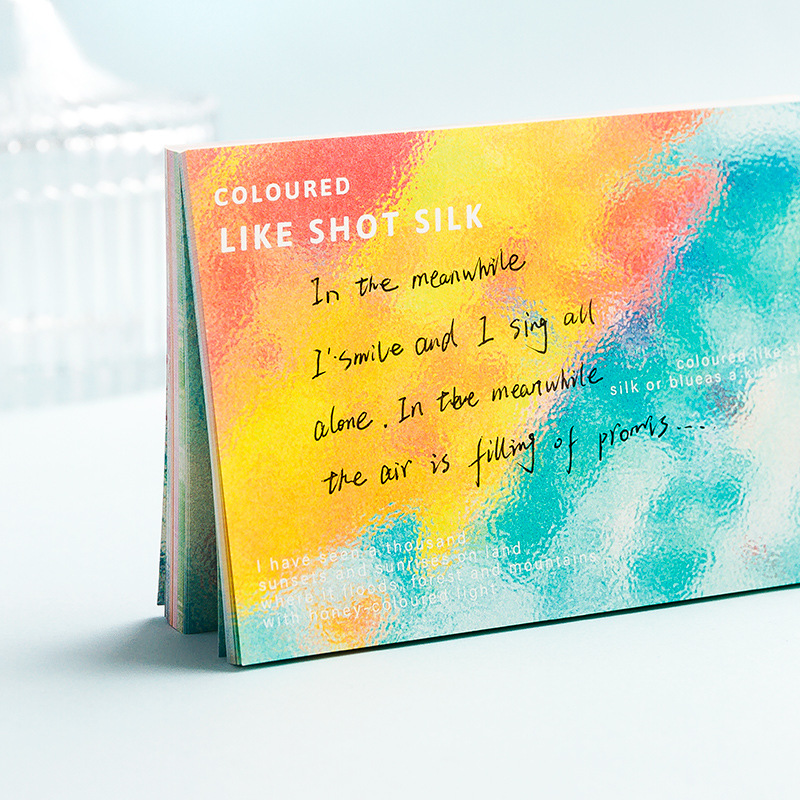 COLOURED
LIKE SHOT SILK
In the meanwhile
I'smile and I sing all
alone. In the meanwhile
the air is filling of promis...
coloured like
silk or blueas a
I have seen a thousand
sunsets and sunrises on land.
where it floods. forest and mountains
with honey-coloured light